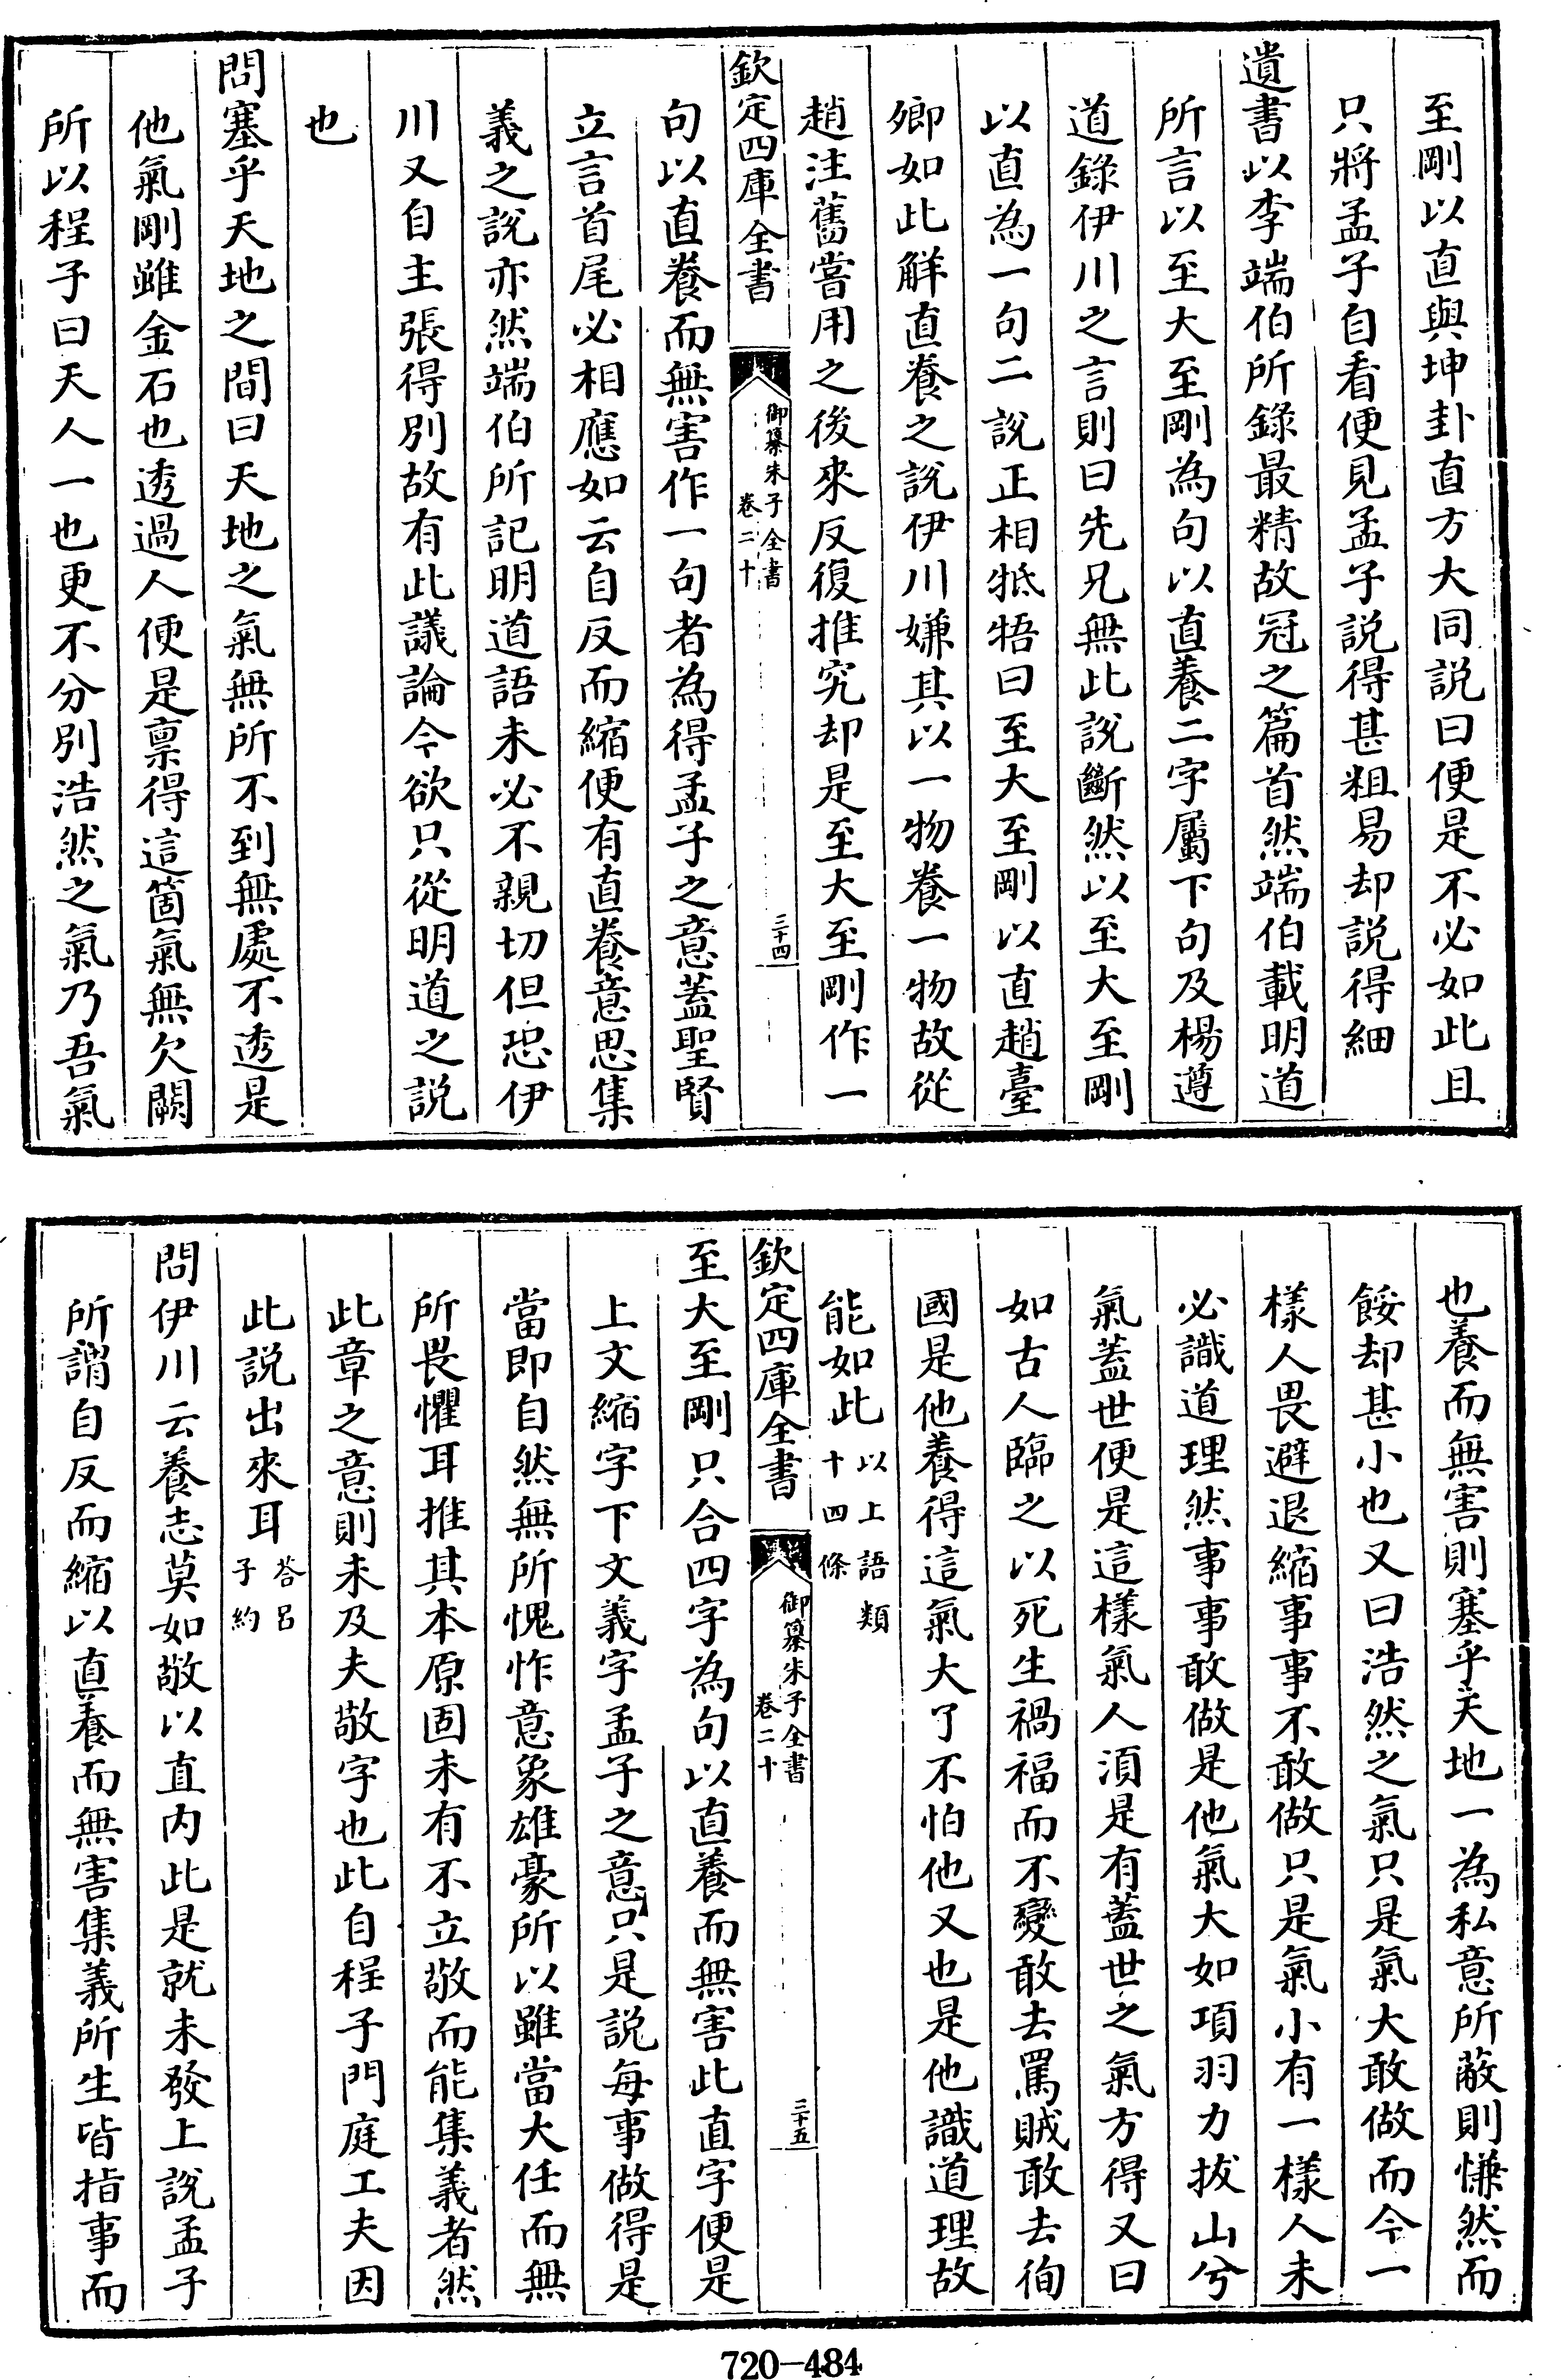 至剛以直與坤卦直方大同説曰便是不必如此且
只將孟子自看便見孟子説得甚粗易却説得細
遺書以李端伯所錄最精故冠之篇首然端伯載明道
所言以至大至剛為句以直養二字屬下句及楊遵
道錄伊川之言則曰先兄無此說斷然以至大至剛
以直為一句二說正相牴牾曰至大至剛以直趙臺
卿如此解直養之說伊川嫌其以一物養一物故從
趙注舊嘗用之後來反復推究却是至大至剛作一
欽定四庫全書
御纂朱子全書
卷二十
三十四
句以直養而無害作一句者為得孟子之意蓋聖賢
立言首尾必相應如云自反而縮便有直養意思集
義之說亦然端伯所記明道語未必不親切但恐伊
川又自主張得別故有此議論今欲只從明道之説
也
問塞乎天地之間曰天地之氣無所不到無處不透是
他氣剛雖金石也透過人便是稟得這箇氣無欠闕
所以程子曰天人一也更不分別浩然之氣乃吾氣
也養而無害則塞乎天地一為私意所蔽則慊然而
餒却甚小也又曰浩然之氣只是氣大敢做而今一
樣人畏避退縮事事不敢做只是氣小有一樣人未
必識道理然事事敢做是他氣大如項羽力拔山兮
氣蓋世便是這樣氣人須是有蓋世之氣方得又曰
如古人臨之以死生禍福而不變敢去罵賊敢去徇
國是他養得這氣大了不怕他又也是他識道理故
能如此
以上語類
十四條
欽定四庫全書
御纂朱子全書
卷二十
三十五
至大至剛只合四字為句以直養而無害此直字便是
上文縮字下文義字孟子之意只是説每事做得是
當即自然無所愧怍意象雄豪所以雖當大任而無
所畏懼耳推其本原固未有不立敬而能集義者然
此章之意則未及夫敬字也此自程子門庭工夫因
此説出來耳
荅呂
子約
問伊川云養志莫如敬以直内此是就未發上說孟子
所謂自反而縮以直養而無害集義所生皆指事而
720-484